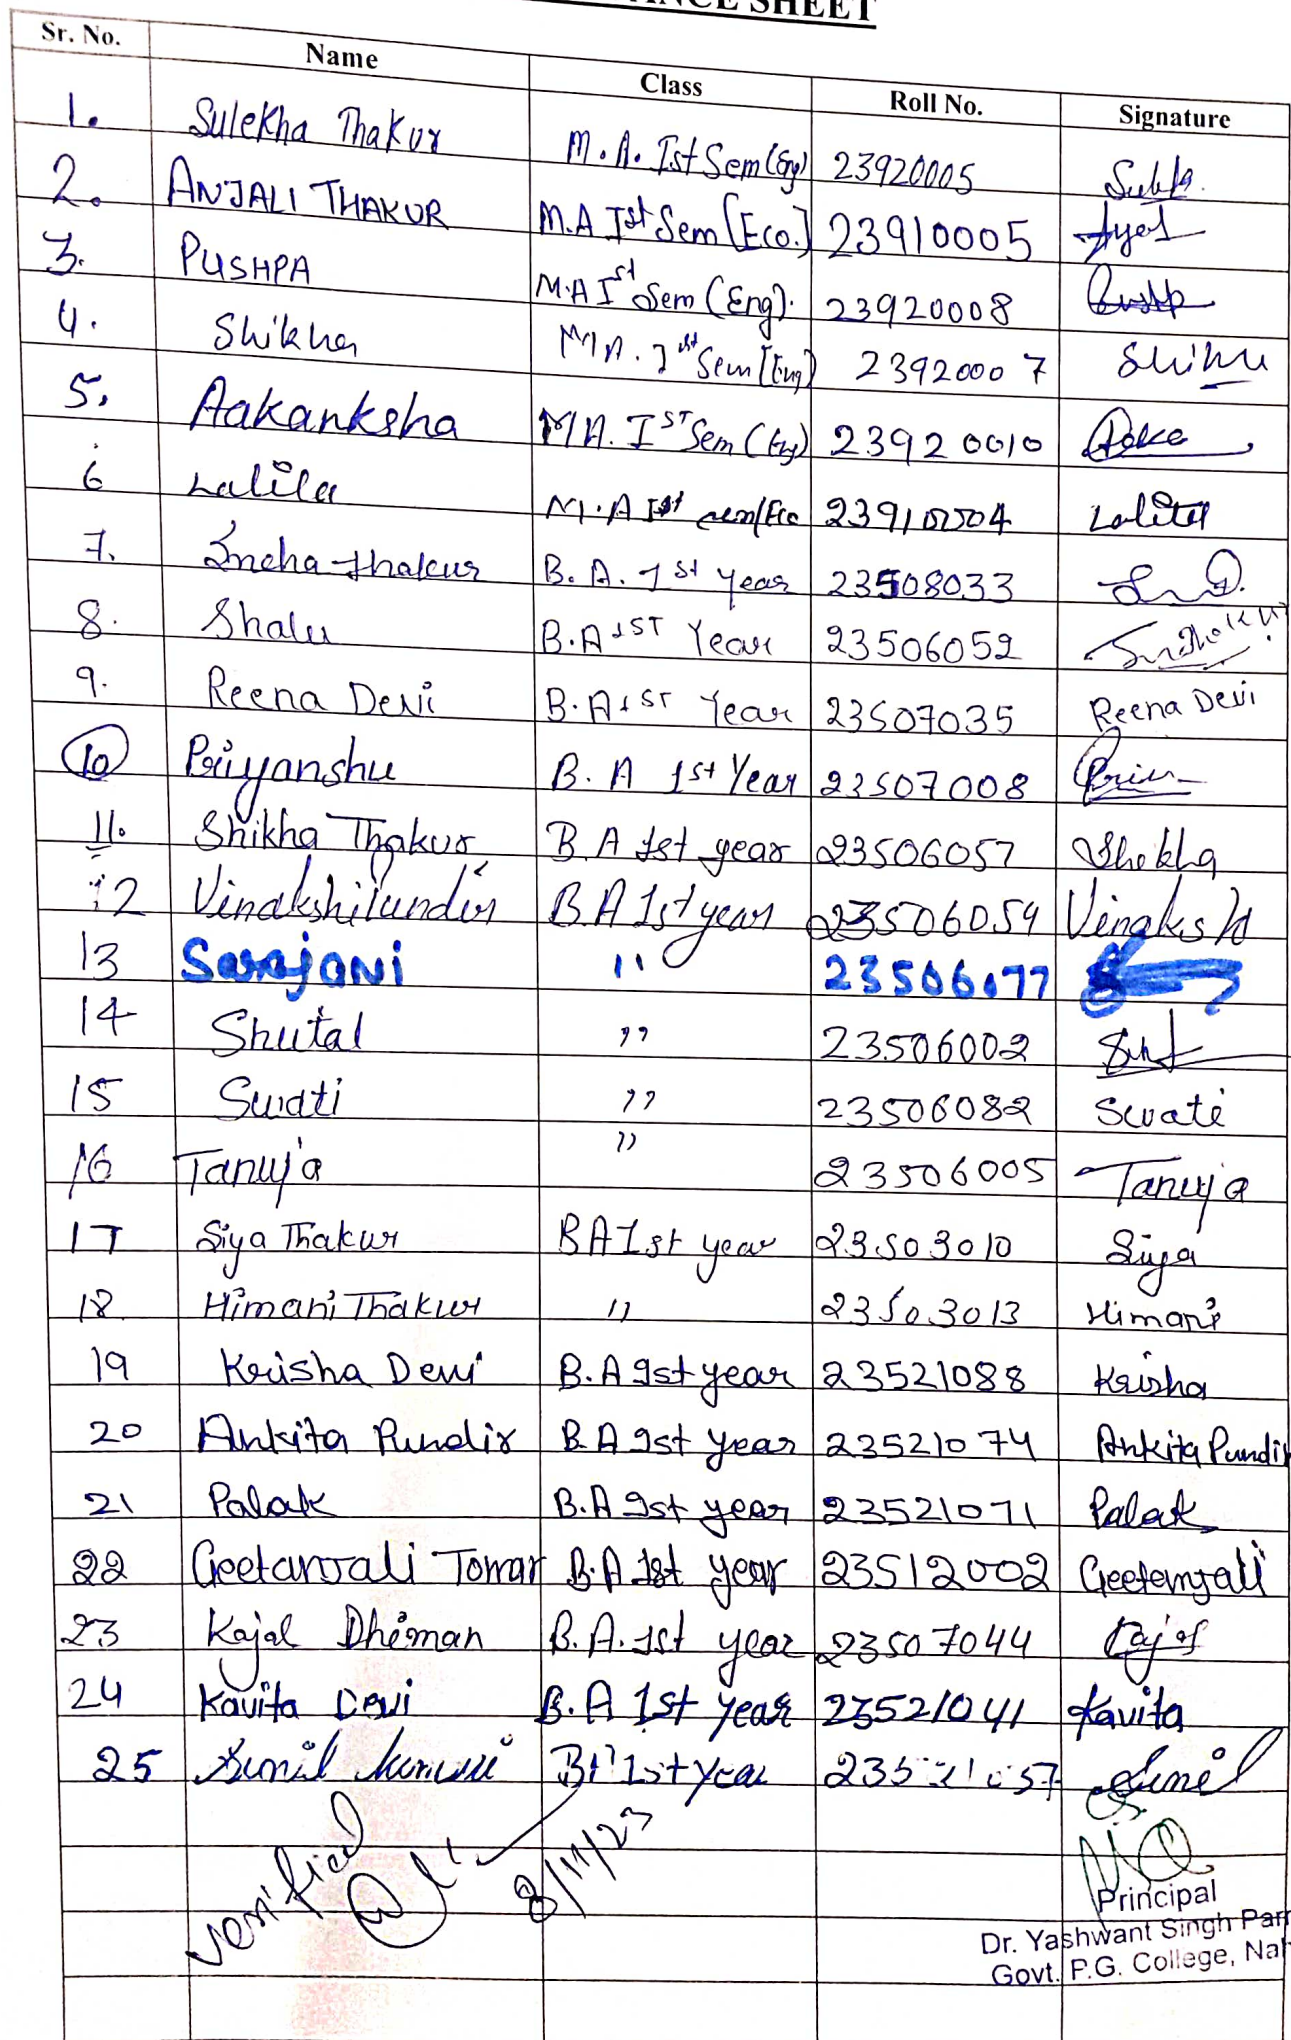 SHEET
Sr. No. Name Class Roll No. Signature
1. Sulekha Thakur M.A. Ist Sem (Eng) 23920005
2. ANJALI THAKUR M.A Ist Sem [Eco.] 23910005
3. PUSHPA M.A Ist Sem (Eng). 23920008
4. Shikha M.A. Ist Sem [Eng] 23920007
5. Aakanksha M.A. IST Sem (Eng) 23920010
6 Lalita M.A Ist sem/Eco 23910004 Lalita
7. Sneha thakur B.A. 1st year 23508033
8. Shalu B.A 1ST Year 23506052
9. Reena Devi B.A 1ST Year 23507035 Reena Devi
10 Priyanshu B.A 1st Year 23507008
11. Shikha Thakur B.A 1st year 23506057 Shikha
12 Vinakshi Pundir B.A 1st year 23506059
13 Sarojani " 23506077
14 Shutal " 23506002
15 Swati " 23506082 Swati
16 Tanuja " 23506005 Tanuja
17 Siya Thakur BA Ist year 23503010 Siya
18 Himani Thakur " 23503013 Himani
19 Krisha Devi B.A Ist year 23521088 Krisha
20 Ankita Pundir B.A Ist year 23521074 Ankita Pundir
21 Palak B.A Ist year 23521071 Palak
22 Geetanjali Tomar B.A Ist year 23512002 Geetanjali
23 Kajal Dhiman B.A. 1st year 23507044 Kajal
24 Kavita Devi B.A 1st year 23521041 Kavita
25 Sunil Kumari BA 1st year 23521057 Sunil
verified 8/11/23
Principal
Dr. Yashwant Singh Par
Govt. P.G. College, Nah